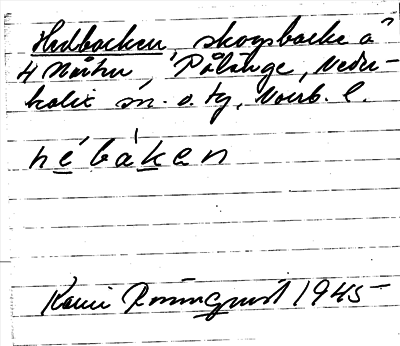 Hedbacken, skogsbacke å
4 Måhu, Pålänge, Neder-
kalix sn. o. tg, Norrb. l.
hébàken
Karin Rosenquist 1945